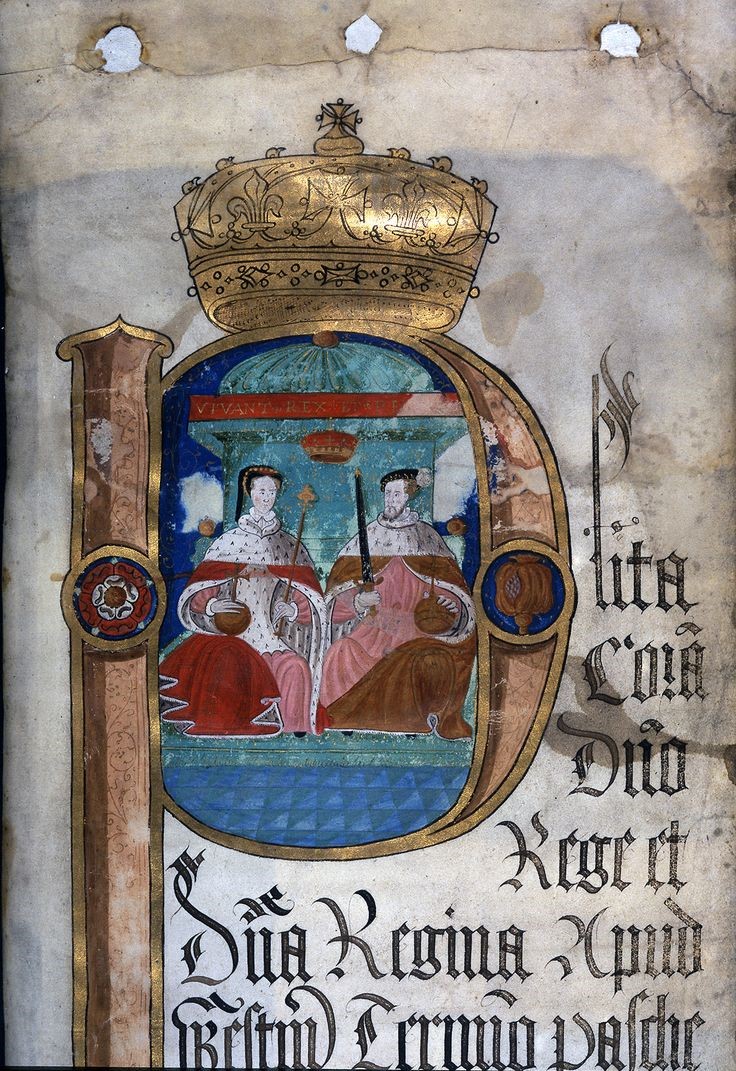 VIVANT REX ET
P
lita
Corā
Dn̄o
Rege et
Dn̄a Regina Apud
Westm̄ Termīo pasche